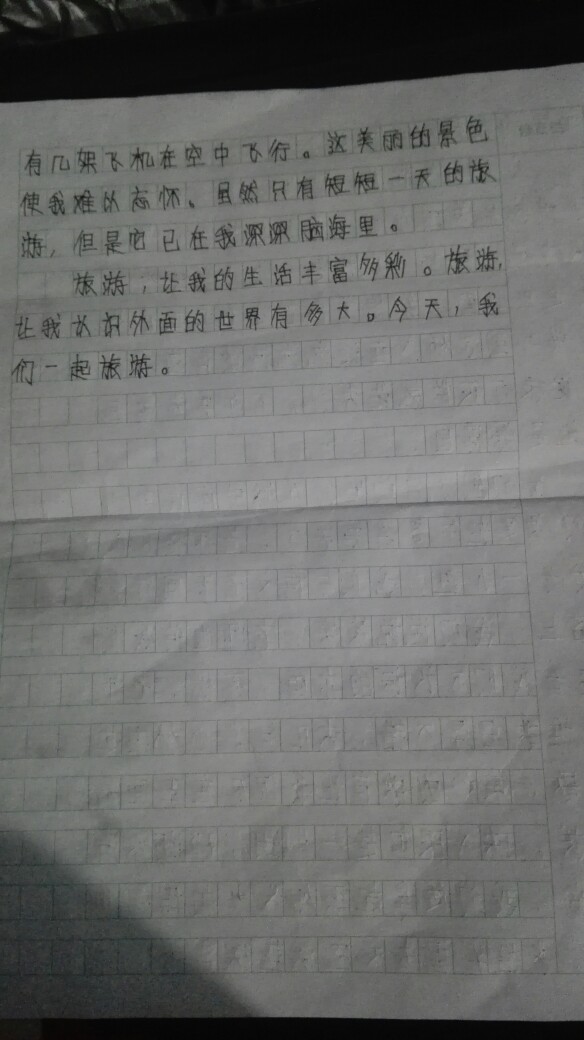 有几架飞机在空中飞行。这美丽的景色
使我难以忘怀。虽然只有短短一天的旅
游，但是它已在我深深脑海里。
旅游，让我的生活丰富多彩。旅游，
让我认识外面的世界有多大。今天，我
们一起旅游。